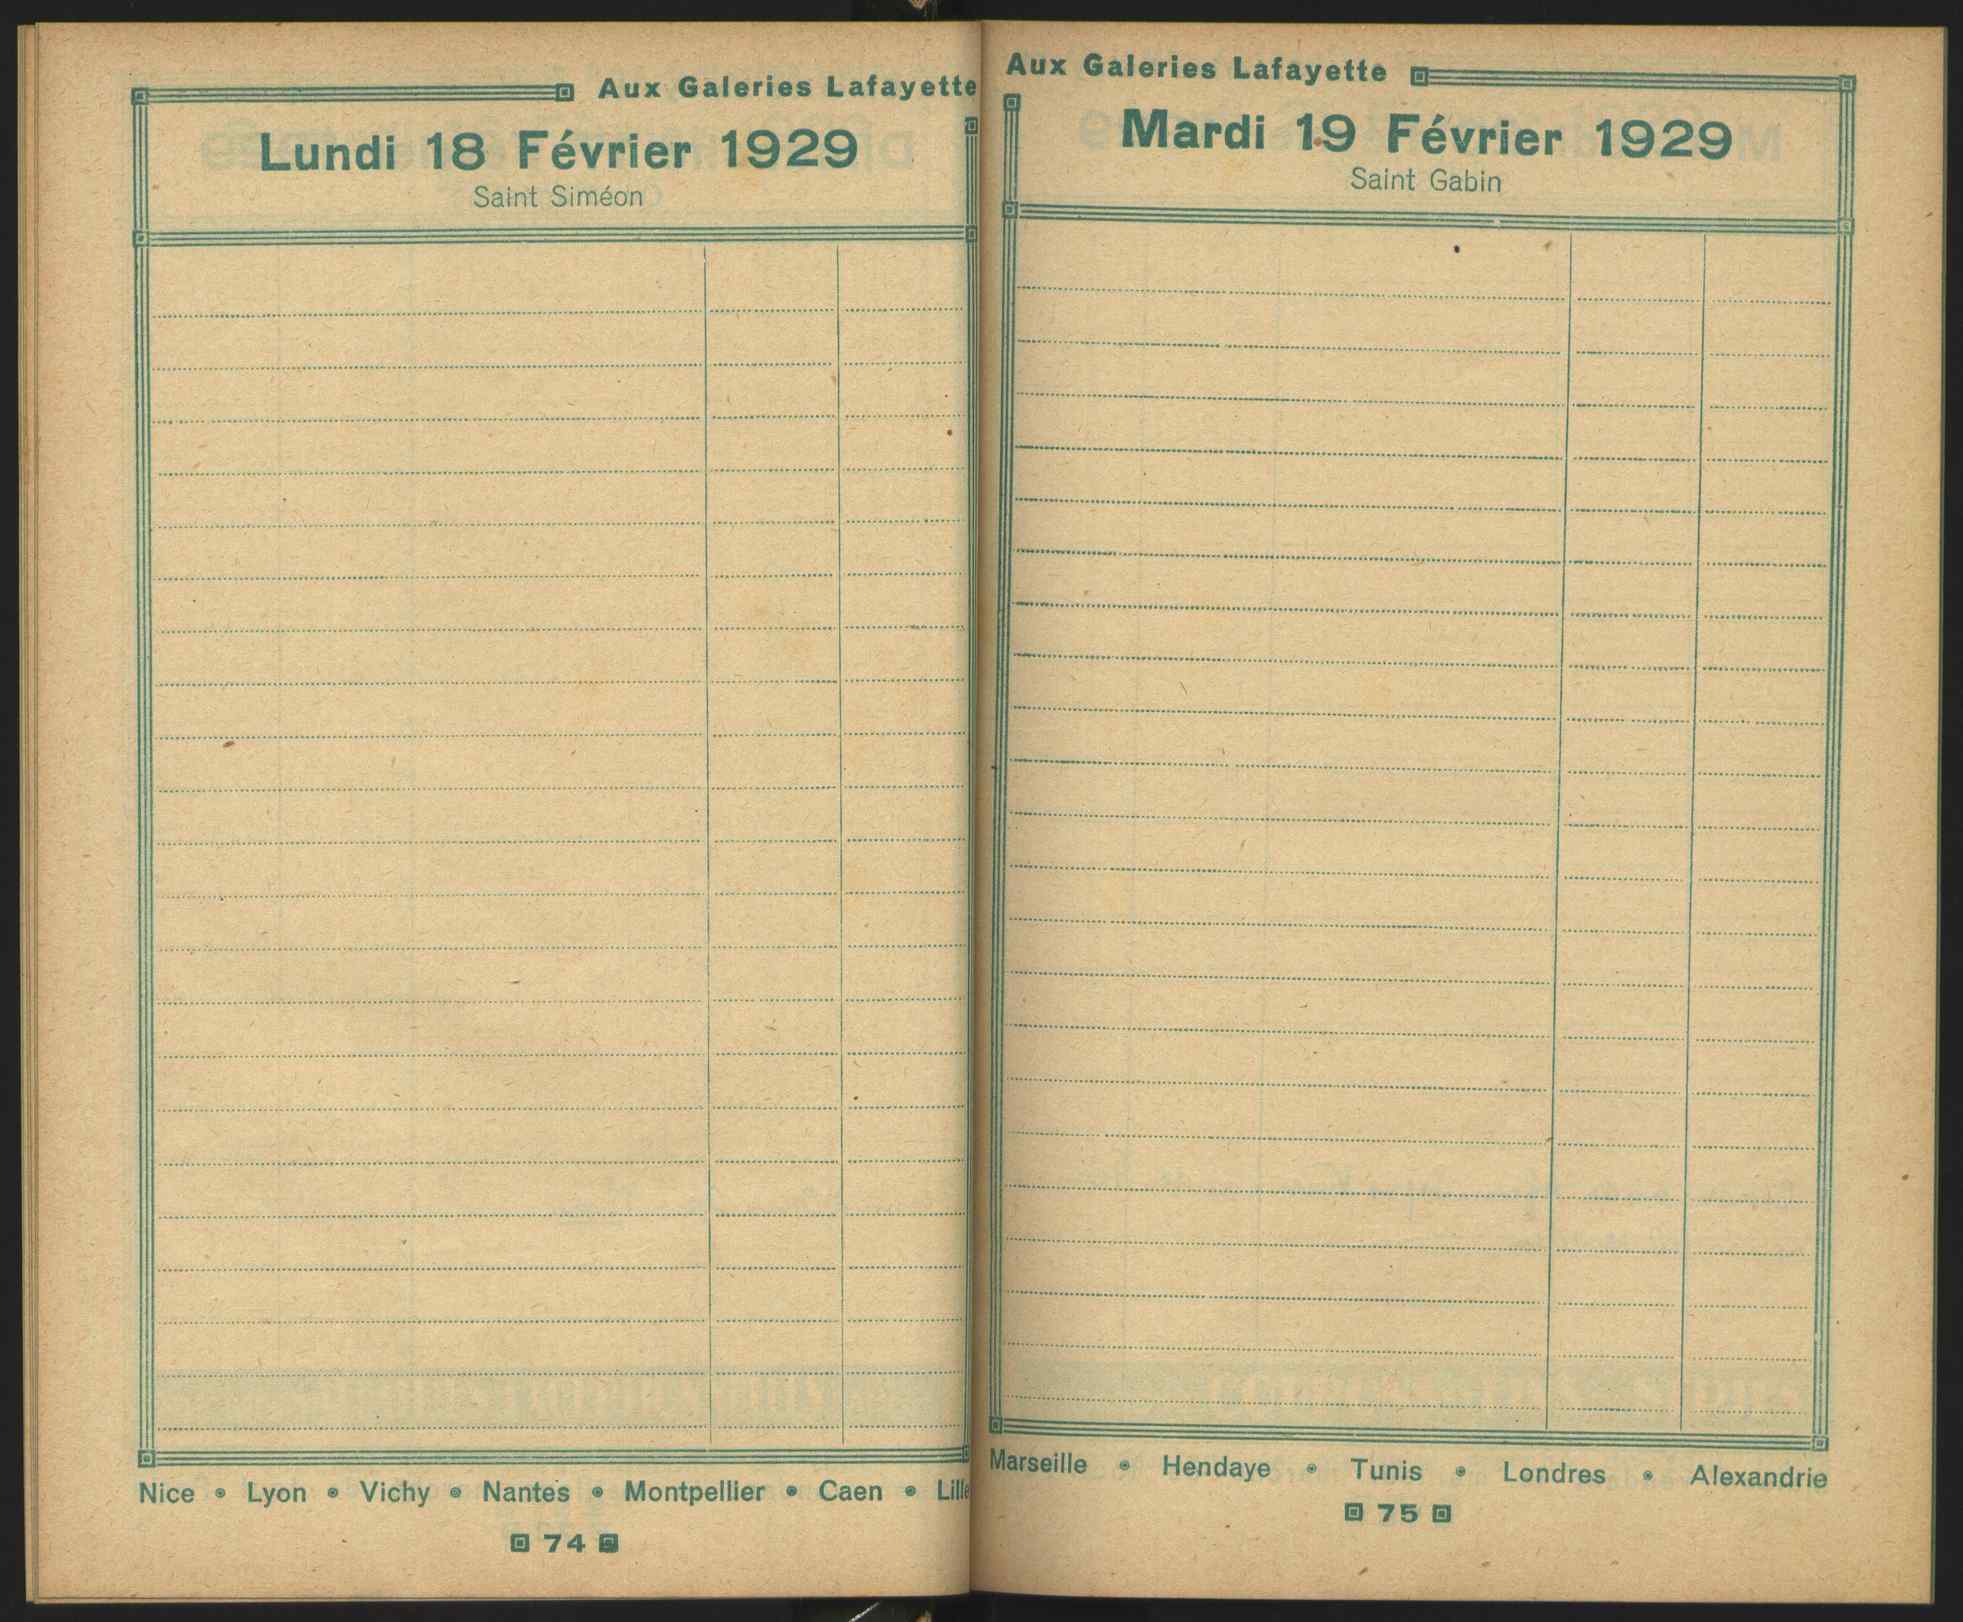 Aux Galeries Lafayette
Lundi 18 Février 1929
Saint Siméon
Nice • Lyon • Vichy • Nantes • Montpellier • Caen • Lille
74
Aux Galeries Lafayette
Mardi 19 Février 1929
Saint Gabin
Marseille • Hendaye • Tunis • Londres • Alexandrie
75